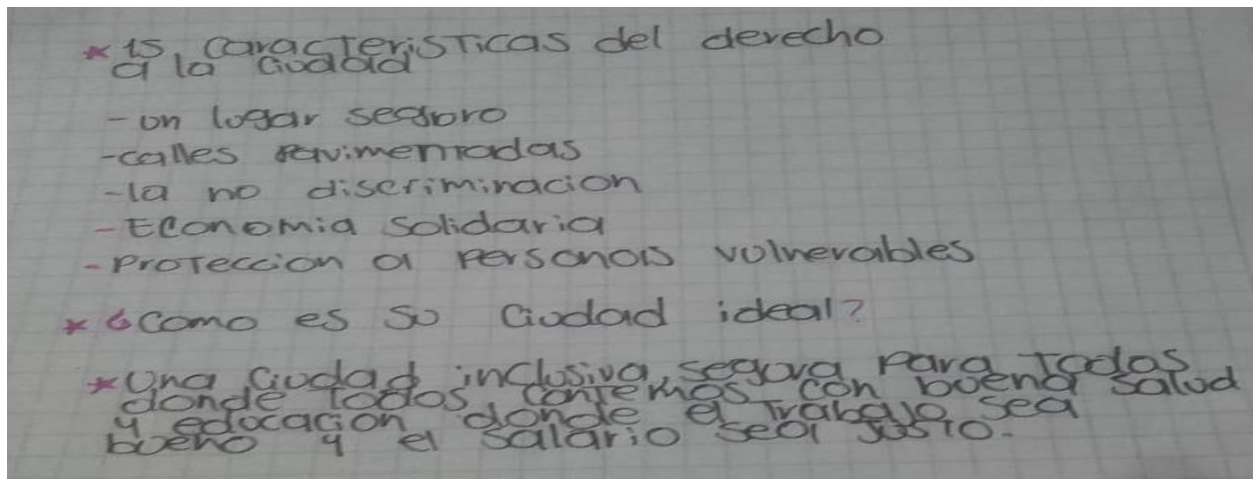 * 15 caracteristicas del derecho
a la ciudad
- un lugar seguro
- calles pavimentadas
- la no discriminacion
- Economia solidaria
- Proteccion a personas vulnerables
* ¿como es su ciudad ideal?
* una ciudad inclusiva, segura para todas
donde todos contemos con buena salud
y educacion donde el trabajo sea
bueno y el salario sea justo.